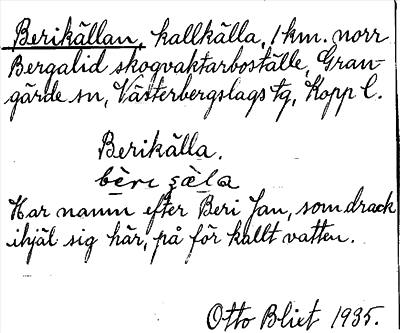 Berikällan, kallkälla, 1 km. norr
Bergalid skogvaktarboställe, Gran-
gärde sn, Västerbergslags tg, Kopp l.
Berikälla.
bèrı ṣä̀la
Har namn efter Beri Jan, som drack
ihjäl sig här, på för kallt vatten.
Otto Blixt 1935.